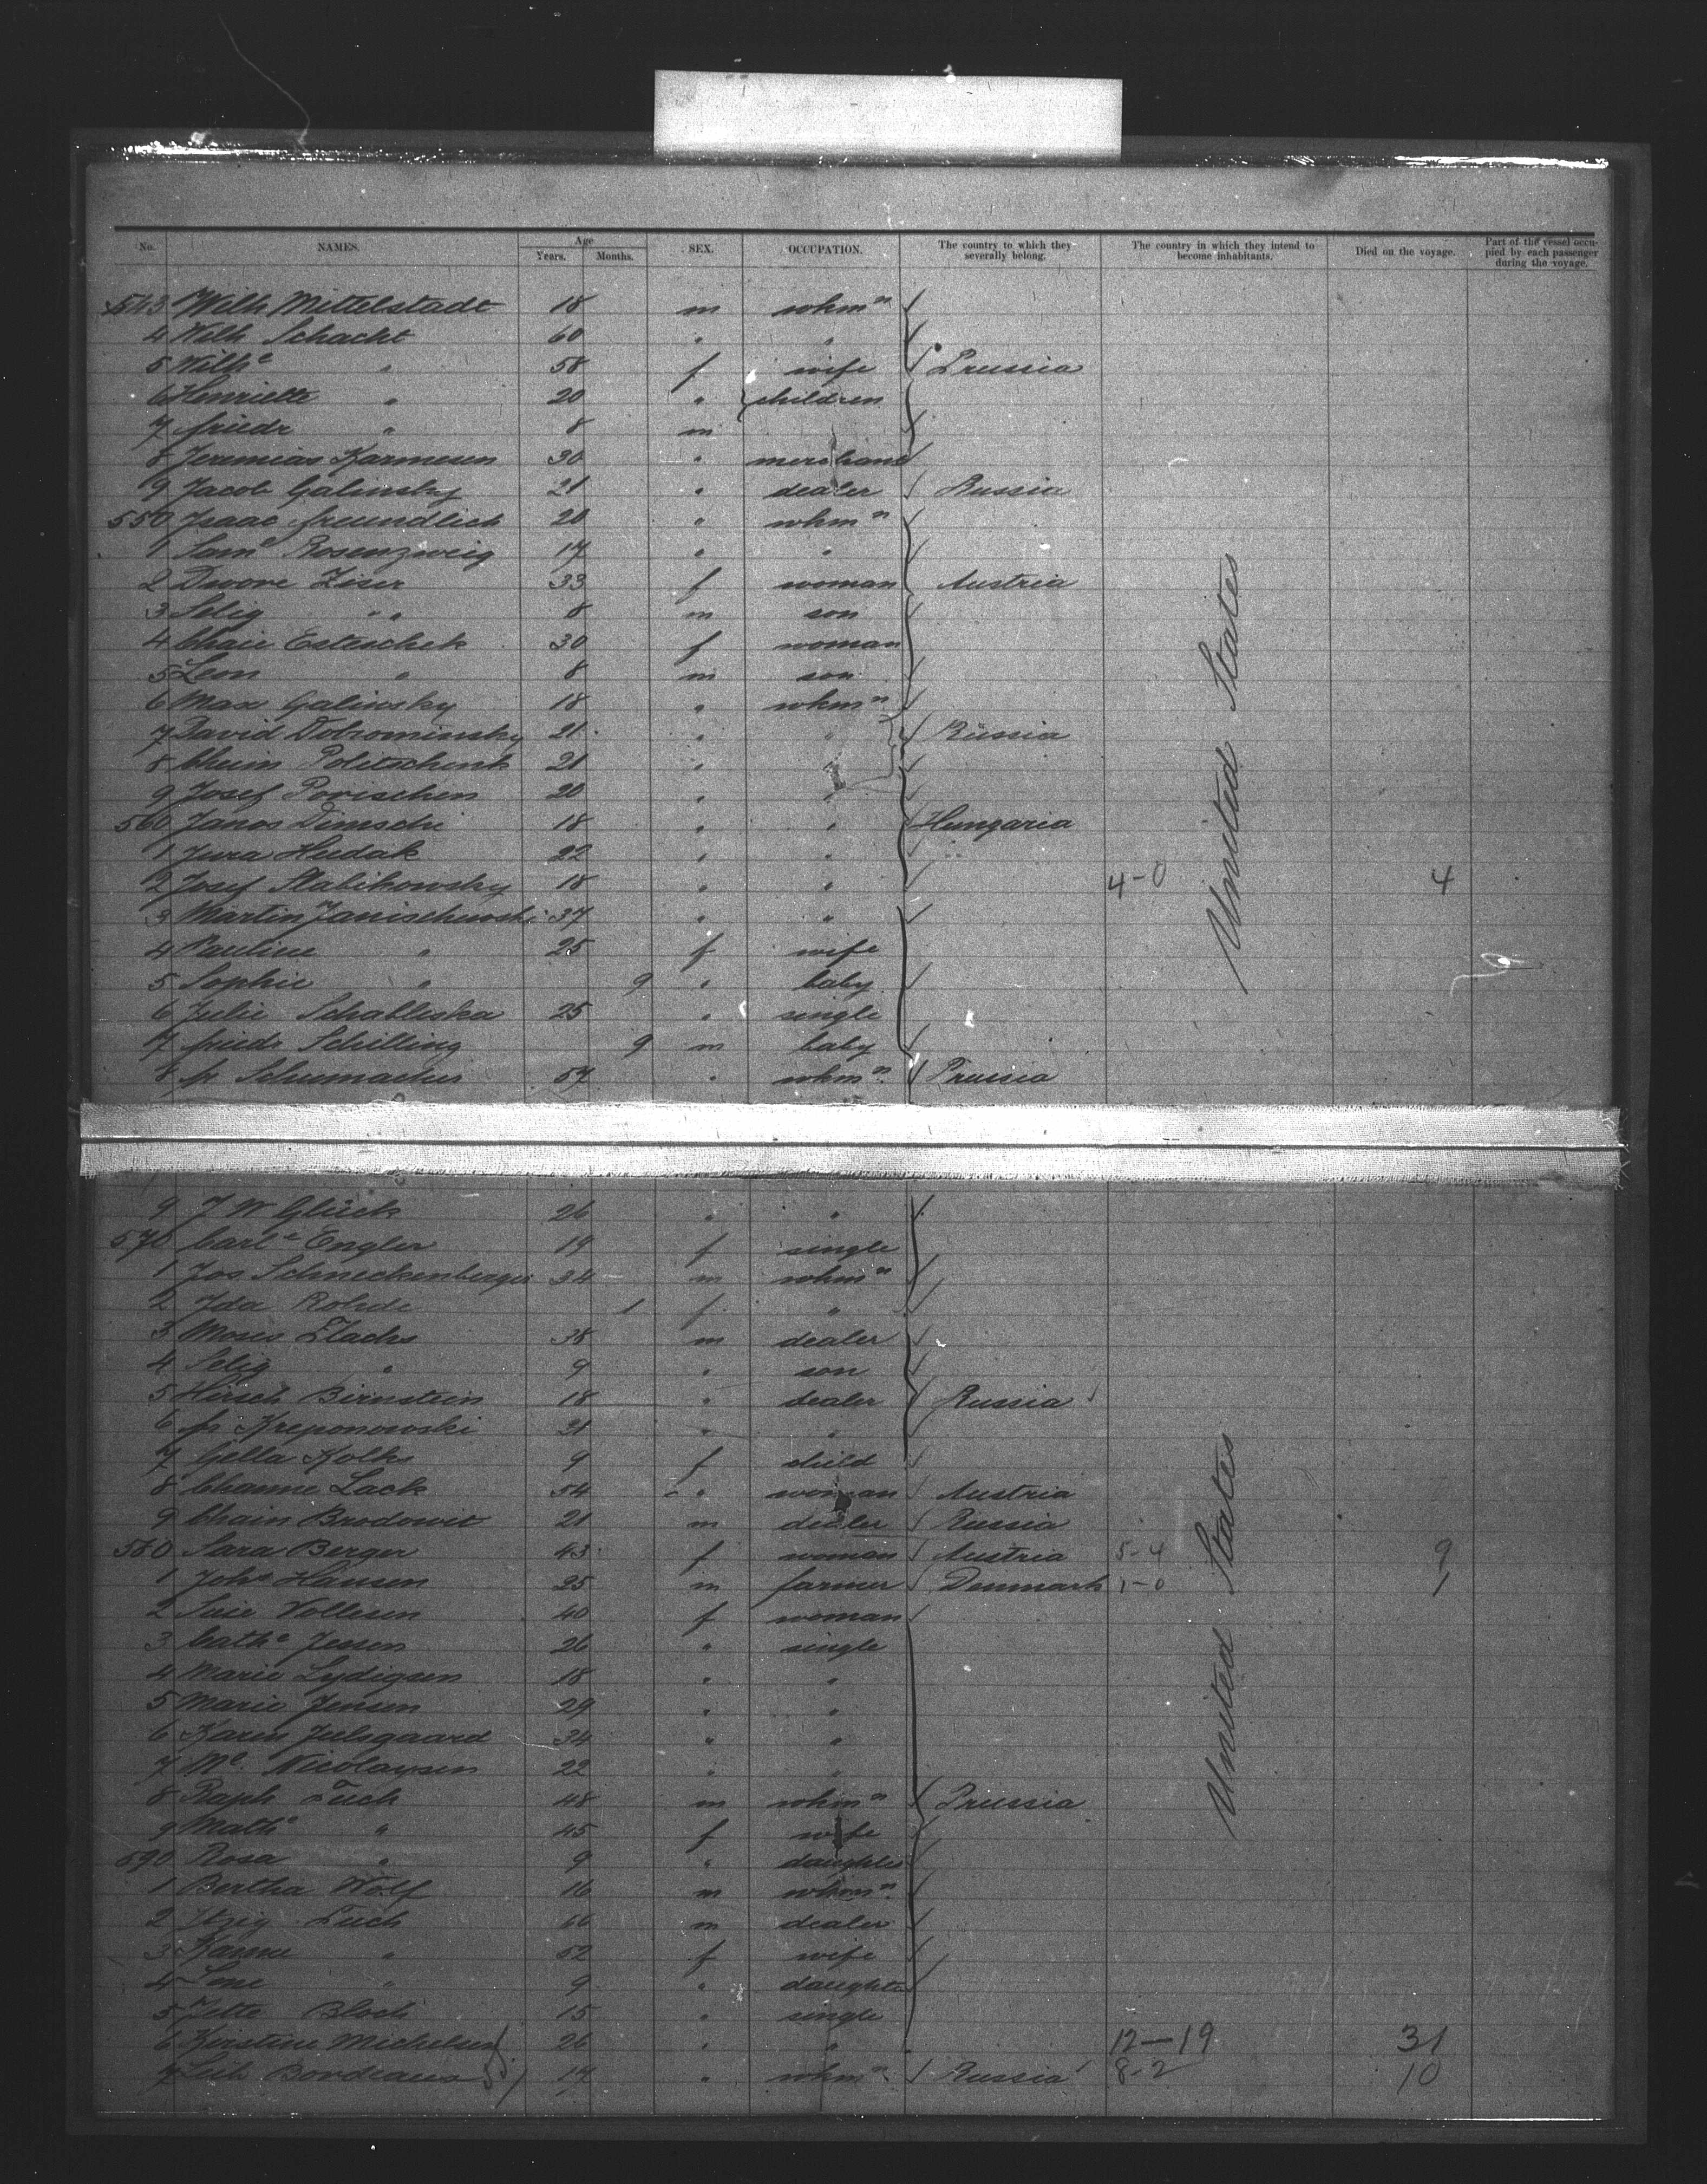 No. NAMES. Age Years. Months. SEX. OCCUPATION. The country to which they severally belong. The country in which they intend to become inhabitants. Died on the voyage. Part of the vessel occupied by each passenger during the voyage.
543 Wilh Mittelstadt 18 m wkmn
4 Wilh Schacht 60 " "
5 Wilhe " 58 f wife Prussia
6 Henriette " 20 " children
7 friedr " 8 m
8 Jeremias Karmesen 30 " merchant
9 Jacob Galinsky 21 " dealer Russia
550 Isaac freundlich 20 " wkmn
1 Saml Rosenzweig 17 " "
2 Dwore Ziser 33 f woman Austria
3 Selig " " 8 m son
4 Chaie Esteschek 30 f woman
5 Leon " 8 m son
6 Max Galinsky 18 " wkmn
7 David Dobrominsky 21 " " Russia
8 Cheim Politschenk 21 " "
9 Josef Porischen 20 " "
560 Janos Dimschi 18 " " Hungaria
1 Jura Hudak 22 " "
2 Josef Slabikowsky 18 " " 4-0 4
3 Martin Janischewski 37 " "
4 Pauline " 25 f wife
5 Sophie " 9 " baby
6 Julie Schableska 25 " single
7 friedr Schilling 9 m baby
8 fr Schumacher 57 " wkmn Prussia
United States
9 J W Glück 26 " "
570 Carle Engler 19 f single
1 Jos Schneckenberger 34 m wkmn
2 Ida Rohde 1 f "
3 Moses Zlachs 38 m dealer
4 Selig " 9 " son
5 Hirsch Birnstein 18 " dealer Russia
6 fr Kreponowski 21 " "
7 Gella Kolk 9 f child
8 Channe Lack 54 " woman Austria
9 Chain Brodowit 21 m dealer Russia
580 Sara Berger 43 f woman Austria 5-4 9
1 Johs Hansen 25 m farmer Denmark 1-0 1
2 Sie Vollesen 40 f woman
3 Cathe Jessen 26 " single
4 Marie Lydigsen 18 " "
5 Marie Jensen 29 " "
6 Karen Juelsgaard 34 " "
7 Me Nicolaysen 22 " "
8 Raph Tuch 48 m wkmn Prussia
9 Mathe " 45 f wife
590 Rosa " 9 " daughter
1 Bertha Wolf 16 m wkmn
2 Itzig Tuch 66 m dealer
3 Hanne " 52 f wife
4 Lene " 9 " daughter
5 Jette Bloch 15 " single
6 Kirstine Michelsen 26 " " 12-19 31
7 Leib Bordeaus 14 " wkmn Russia 8-2 10
United States